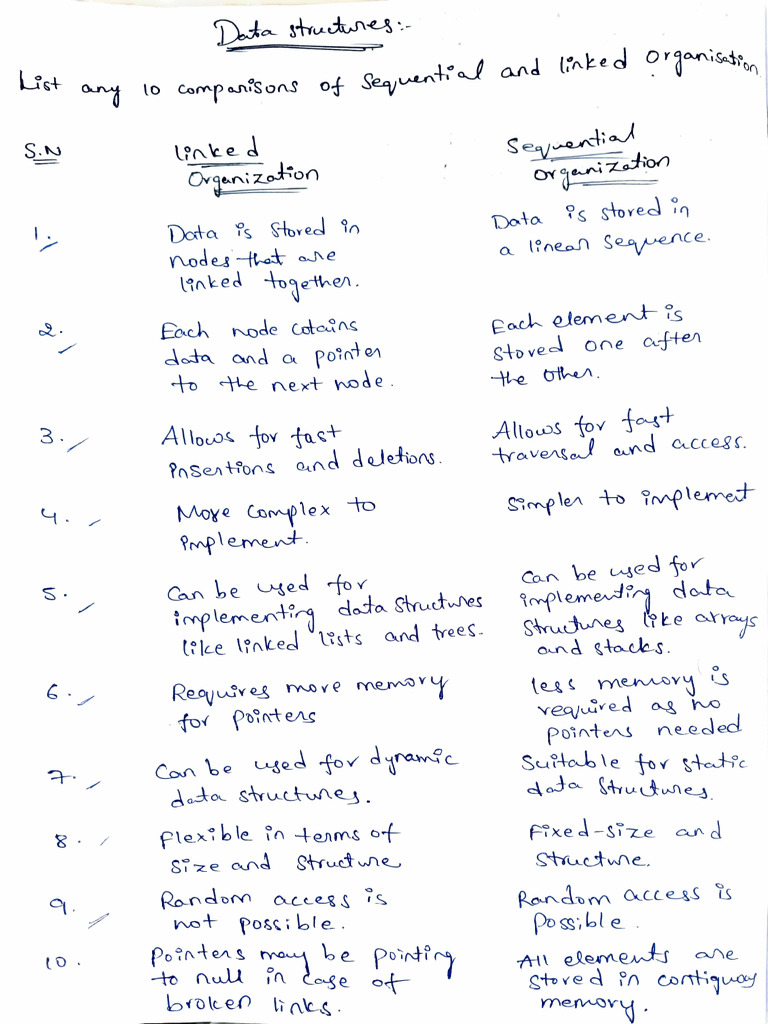 Data structures:-
List any 10 comparisons of sequential and linked organisation
S.N
linked
Organization
Sequential
organization
1.
Data is stored in
nodes that are
linked together.
Data is stored in
a linear sequence.
2.
Each node cotains
data and a pointer
to the next node.
Each element is
stored one after
the other.
3.
Allows for fast
insertions and deletions.
Allows for fast
traversal and access.
4.
More complex to
implement.
Simpler to implemet
5.
Can be used for
implementing data structures
like linked lists and trees.
Can be used for
implementing data
structures like arrays
and stacks.
6.
Requires more memory
for pointers
less memory is
required as no
pointers needed
7.
Can be used for dynamic
data structures.
Suitable for static
data structures.
8.
flexible in terms of
size and structure
Fixed-size and
structure.
9.
Random access is
not possible.
Random access is
possible.
10.
Pointers may be pointing
to null in case of
broken links.
All elements are
stored in contiguoy
memory.